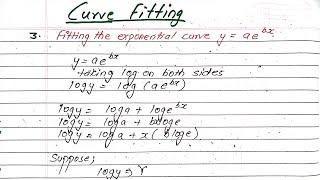 Curve Fitting
3. Fitting the exponential curve y = ae^bx
y = ae^bx
taking log on both sides
log y = log (ae^bx)
log y = log a + log e^bx
log y = log a + bx log e
log y = log a + x (b log e)
Suppose;
log y = Y